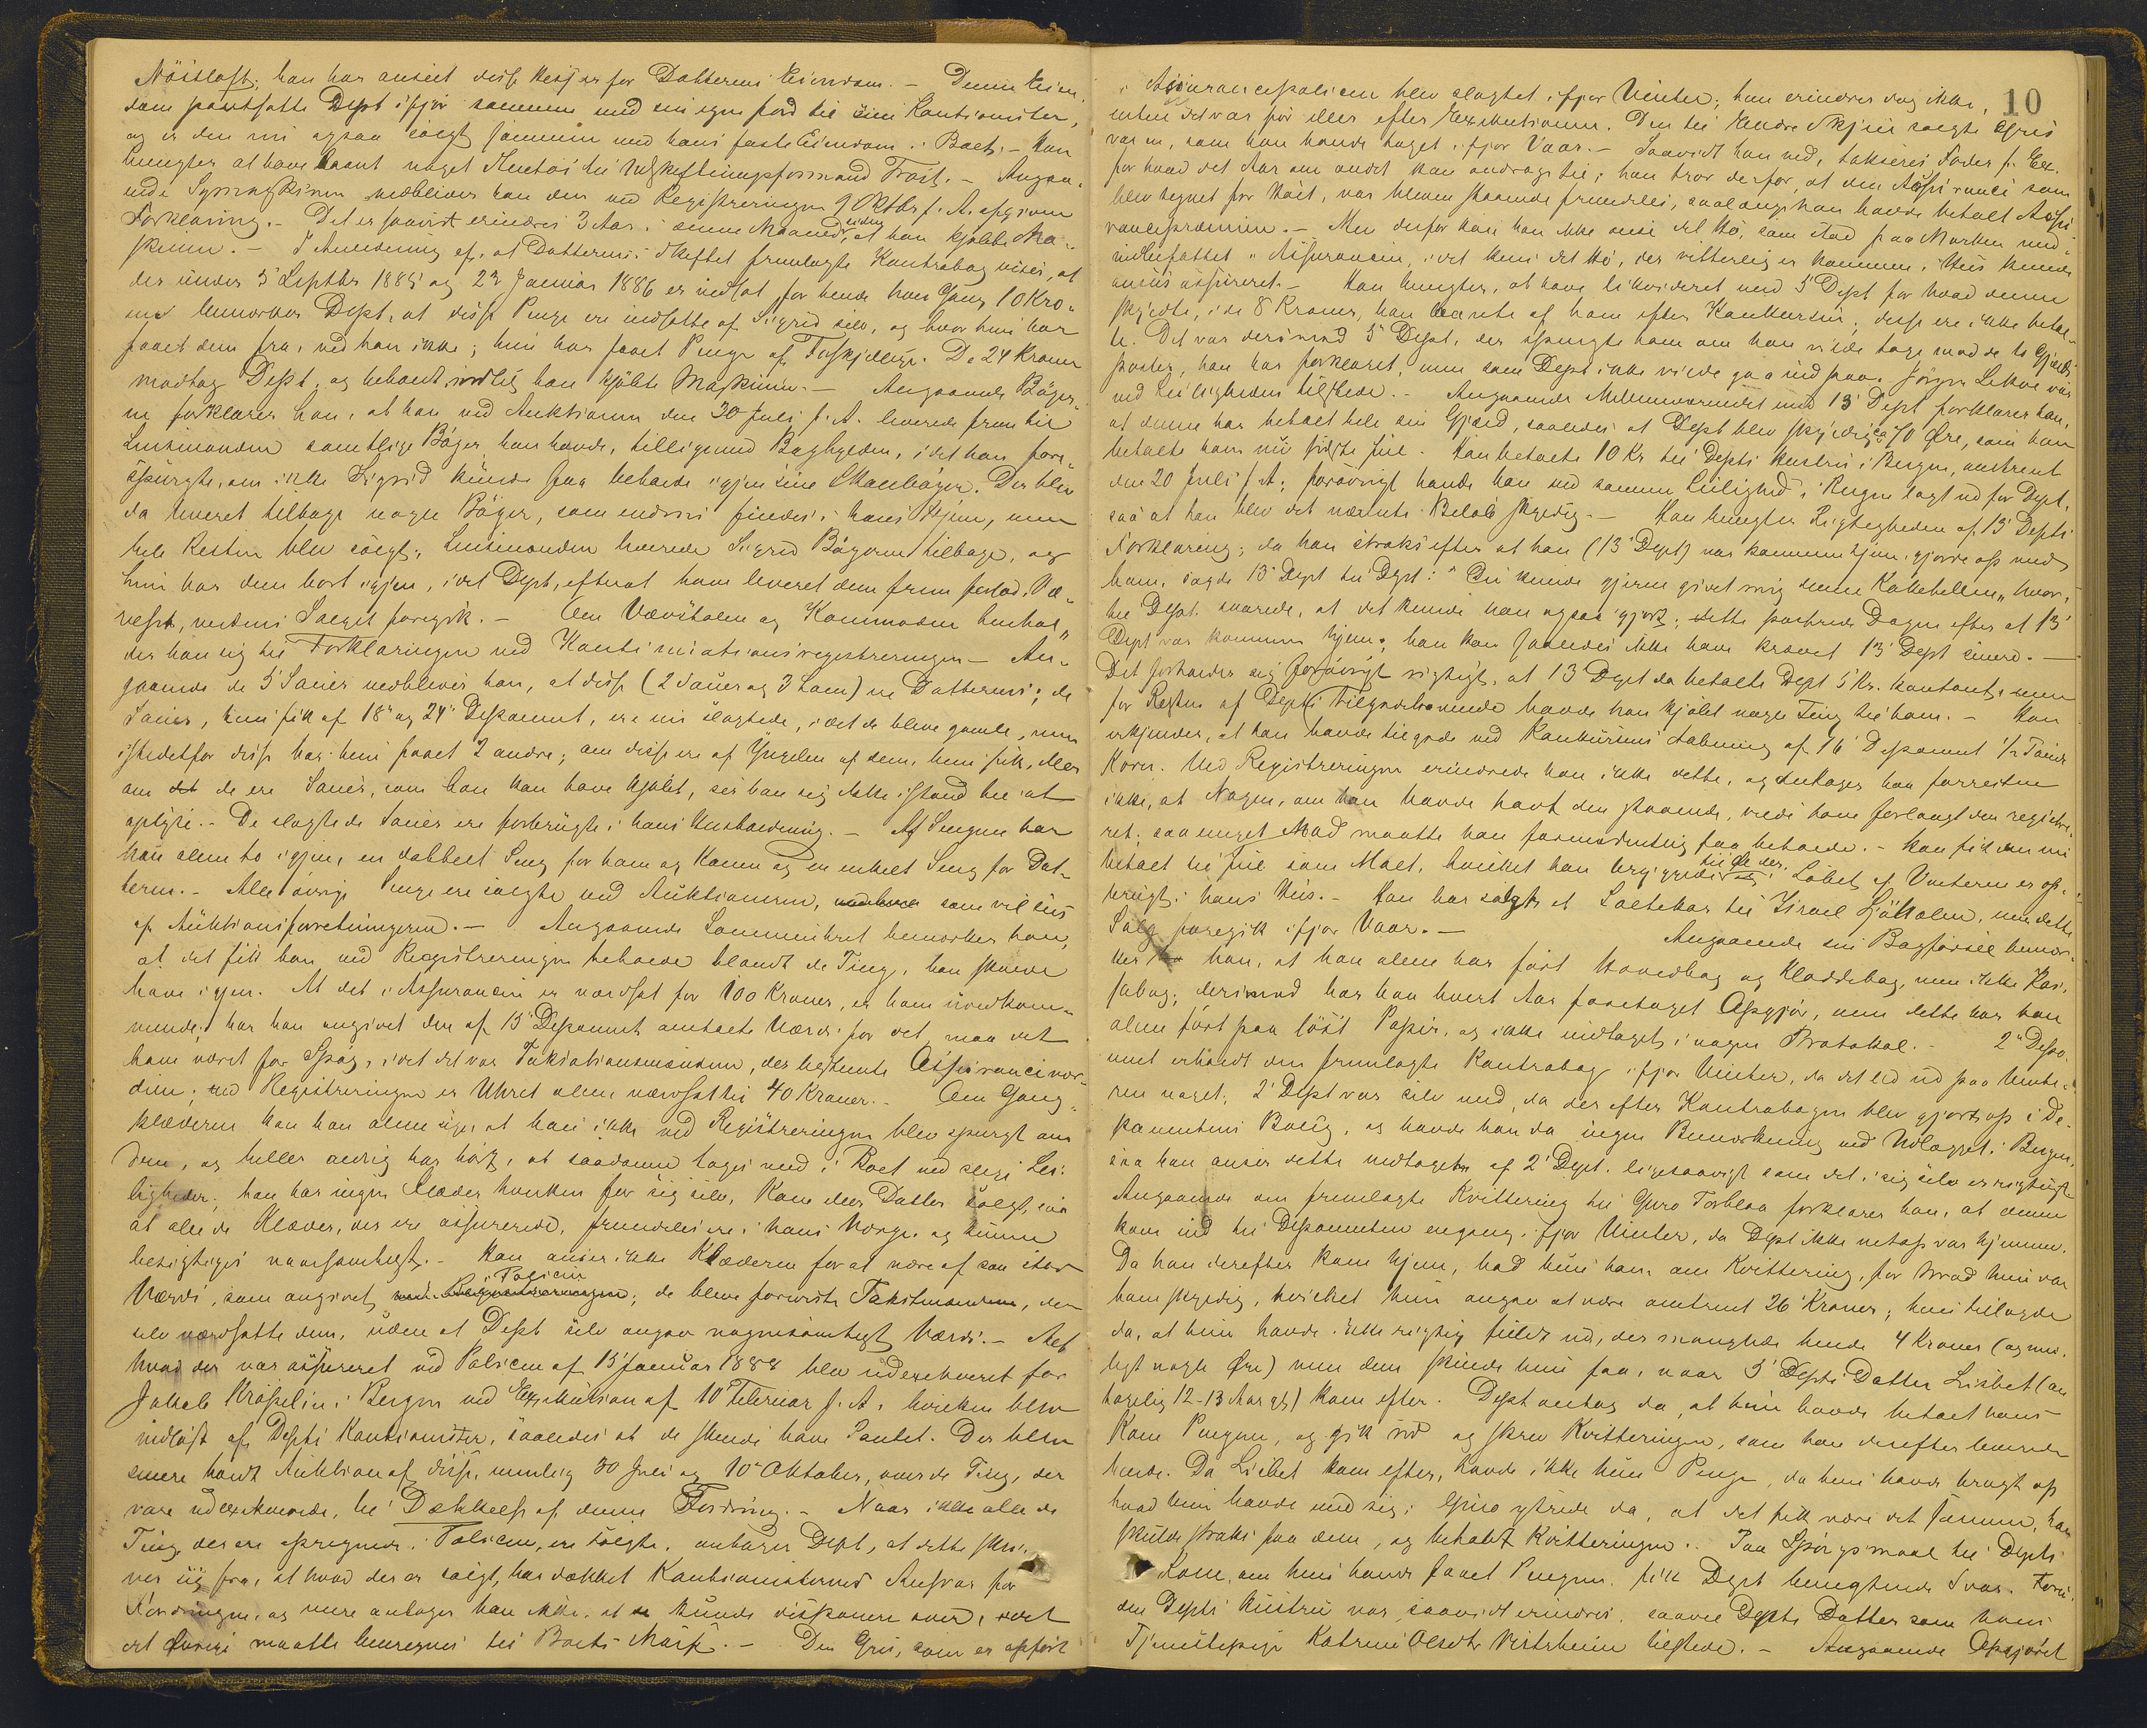 Nöistoft; han har anseet disse Ussj er for Datterens Eiendom. - Denne Eien¬
dom pantsatte Dept ifjor sammen med sin egen Jord til sine Kautionister,
og er den nu ogsaa solgt sammen med hans faste Eiendom i Boet. - Han
benegter at have laant noget Hentöi til Udskiftningsformand Trost. - Angaa¬
ende Symaskinen vedbliver han den ved Registreringen 9 Oktbr f. A. afgivne
Forklaring. - Det er saavidt erindres 3 Aar i denne Maaned siden, at han kjøbte Ma¬
skinen. - I Anledning af, at Datterens i Skiftet fremlagte Kontrabog viser, at
der under 5 Septbr 1885 og 23 Januar 1886 er indsat for hende hver Gang 10 Kro¬
ner bemærker Dept, at disse Penge ere indsatte af Sigrid selv, og hvor hun har
faaet dem fra, ved han ikke; hun har faaet Penge af Forskjellige. De 24 Kroner
modtog Dept, og beholdt, indtil han kjøbte Maskinen. - Angaaende Bøger¬
ne forklarer han, at han ved Auktionen den 30 Juli f. A. leverede frem til
Lensmanden samtlige Bøger han havde, tilligemed Boghylden, idet han fore¬
spurgte, om ikke Sigrid kunde faa beholde igjen sine Skolebøger. Der blev
da leveret tilbage nogle Bøger, som endnu findes i hans Hjem, men
hele Resten blev solgt; Lensmanden leverede Sigrid Bøgerne tilbage, og
hun har dem bort igjen, idet Dept, efterat have leveret dem frem forlod Væ¬
relset, medens Salget foregik. - Om Vævstolen og Kommoden henhol¬
der han sig til Forklaringen ved Kontinuationsregistreringen - An¬
gaaende de 5 Sauer vedbliver han, at disse (2 Sauer og 3 Lam) ere Datterens; de
Sauer, hun fik af 18de og 24de Deponent, ere nu slagtede, idet de bleve gamle, men
istedetfor disse har hun faaet 2 andre; om disse ere af Yngelen af dem, hun fik, eller
om de ere Sauer, som han kan have kjøbt, ser han sig ikke istand til at
oplyse. - De slagtede Sauer ere forbrugte i hans Husholdning. - Af Sengene har
han alene to igjen, en dobbelt Seng for ham og Konen og en enkelt Seng for Dat¬
teren. - Alle øvrige Senge ere solgte ved Auktionerne, som vil sees
af Auktionsforretningerne. - Angaaende Lommeuhret bemærker han,
at det fik han ved Registreringen beholde blandt de Ting, han skulde
have igjen. At det i Assurancen er værdsat for 100 Kroner, er ham uvedkom¬
mende; har han angivet den af 13de Deponent omtalte Værdi for det, maa det
have været for Spøg, idet det var Taxationsmændene, der bestemte Assuranceværdien
dien; ved Registreringen er Uhret alene værdsat til 40 Kroner. - Om Gang¬
klæderne kan han alene sige, at han ikke ved Registreringen blev spurgt om
dem, og heller aldrig har hørt, at saadanne tages med i Boet ved slige Lei¬
ligheder; han har ingen Klæder hverken for sig selv, Kone eller Datter solgt, saa
at alle de Klæder, der ere assurerede, fremdeles ere i hans Værge og kunne
besigtiges naarsomhelst. - Han anser ikke Klæderne for at være af saa stor
Værdi, som angivet i Policen; de bleve foreviste Takstmændene, der
selv værdsatte dem, uden at Dept selv angav nogensomhelst Værdi. - Alt
hvad der var assureret ved Policen af 13 Januar 1888 blev udexekveret for
Jakob Kröpelin i Bergen ved Exekution af 10 Februar f. A., hvilken blev
indløst af Depts Kautionister, saaledes at de skulde have Pantet. Der blev
senere holdt Auktion af disse, nemlig 30 Juli og 10 Oktober, over de Ting, der
vare udexekverede, til Dækkelse af denne Fordring. - Naar ikke alle de
Ting, der ere opregnede i Policen, ere solgte, antager Dept, at dette skri¬
ver sig fra, at hvad der er solgt, har dækket Kautionisternes Ansvar for
Fordringen, og mere antager han ikke, at de kunde disponere over, idet
det Øvrige maatte henregnes til Boets Masse. - Den Gris, som er opført
10
i Assurancepolicen blev slagtet ifjor Vinter; han erindrer dog ikke,
enten det var før eller efter Exekutionen. Den til Endre Skjeie solgte Gris
var en, som han havde taget ifjor Vaar. - Saavidt han ved, takseres Foder f. Ex.
for hvad det Aar om andet kan andrage til; han tror derfor, at den Assurance som
blev tegnet for Høit, var bleven staaende fremdeles, saalænge han havde betalt Assu¬
rancepræmien. - Men derfor kan han ikke anse det Hø, som stod paa Marken med
indbefattet i Assurancen, idet kun det Hø, der vitterlig er kommen i Hus kunde
ansees assureret. - Han benegter, at have likvideret med 5 Dept for hvad denne
skyldte, i de 8 Kroner, han laante af ham efter Konkursen; disse ere ikke betal¬
te. Det var derimod 5 Dept, der spurgte ham om han vilde tage mod de to Gjælds¬
poster, han har forklaret, men som Dept ikke vilde gaa ind paa. Jørgen Lekve var
ved Leiligheden tilstede. - Angaaende Mellemværendet med 13 Dept forklarer han,
at denne har betalt hele sin Gjæld, saaledes at Dept blev skyldig ca 70 Øre, som han
betalte ham nu sidste Jul. Han betalte 10 Kr til Depts Hustru i Bergen, omtrent
den 20 Juli f. A; forøvrigt havde han ved samme Leilighed i Bergen lagt ud for Dept,
saa at han blev det nævnte Beløb skyldig. - Han benegter Rigtigheden af 13 Depts
Forklaring; da han straks efter at han (13 Dept) var kommen hjem, gjorde op med
ham, sagde 13 Dept til Dept: "Du kunde gjerne givet mig denne Kakkelovn", hvor¬
til Dept svarede, at det kunde han ogsaa gjort; dette passerede Dagen efter at 13
Dept var kommen hjem; han kan saaledes ikke have krævet 13 Dept senere. -
Det forholder sig forøvrigt rigtigt, at 13 Dept da betalte Dept 5 Kr. kontant, men
for Resten af Depts Tilgodehavende havde han kjøbt nogle Ting til ham. - Han
erkjender, at han havde tilgode ved Konkursens Aabning af 16 Deponent 1/2 Tønde
Korn. Ved Registreringen erindrede han ikke dette, og antager han forresten
ikke, at Nogen, om han havde havt den staaende, vilde have forlangt den registre¬
ret; saa meget Mad maatte han formodentlig faa beholde. - Han fik den nu
betalt til Jul som Malt, hvilket han bryggede til Øl der i Løbet af Vinteren er op¬
brugt i hans Hus. - Han har solgt et Saltekar til Israel Sjøkolen, men dette
Salg foregik ifjor Vaar. - Angaaende sin Bogførsel bemær¬
ker han, at han alene har ført Hovedbog og Kladdebog, men ikke Kas¬
sabog; derimod har han hvert Aar foretaget Opgjør, men dette har han
alene ført paa løst Papir, og ikke indtaget i nogen Protokol. - 2de Depo¬
nent erholdt den fremlagte Kontrabog ifjor Vinter, da det led ud paa Vinte¬
ren noget; 2 Dept var selv med, da der efter Kontrabogen blev gjort op i De¬
ponentens Bolig, og havde han da ingen Bemærkning ved Udlægget i Bergen,
saa han anser dette vedtaget af 2 Dept. ligesaavist som det i sig selv er rigtigt.
Angaaende den fremlagte Kvittering til Guro Torblaa forklarer han, at denne
kom ind til Deponenten engang ifjor Vinter, da Dept ikke netop var hjemme.
Da han derefter kom hjem, bad hun ham om Kvittering, for hvad hun var
ham skyldig, hvilket hun angav at være omtrent 26 Kroner; hun tilagde
da, at hun havde ikke rigtig fuldt ud, der manglede hende 4 Kroner (og mu¬
ligt nogle Øre) men dem skulde hun faa, naar 5 Depts Datter Lisbet (an¬
tagelig 12-13 Aar gl) kom efter. Dept antog da, at hun havde betalt hans
Kone Pengene, og gik ind og skrev Kvitteringen, som han derefter leverede
hende. Da Lisbet kom efter, havde ikke hun Penge, da hun havde brugt op
hvad hun havde med sig; Guro ytrede da, at det fik være det samme, han
skulde straks faa dem, og beholdt Kvitteringen. Paa Spørgsmaal til Depts
Kone, om hun havde faaet Pengene, fik Dept benegtende Svar. Foru¬
den Depts Hustru var, saavidt erindres, saavel Depts Datter som hans
Tjenestepige Katrine Olsdtr Victsheim tilstede. - Angaaende Opgjøret